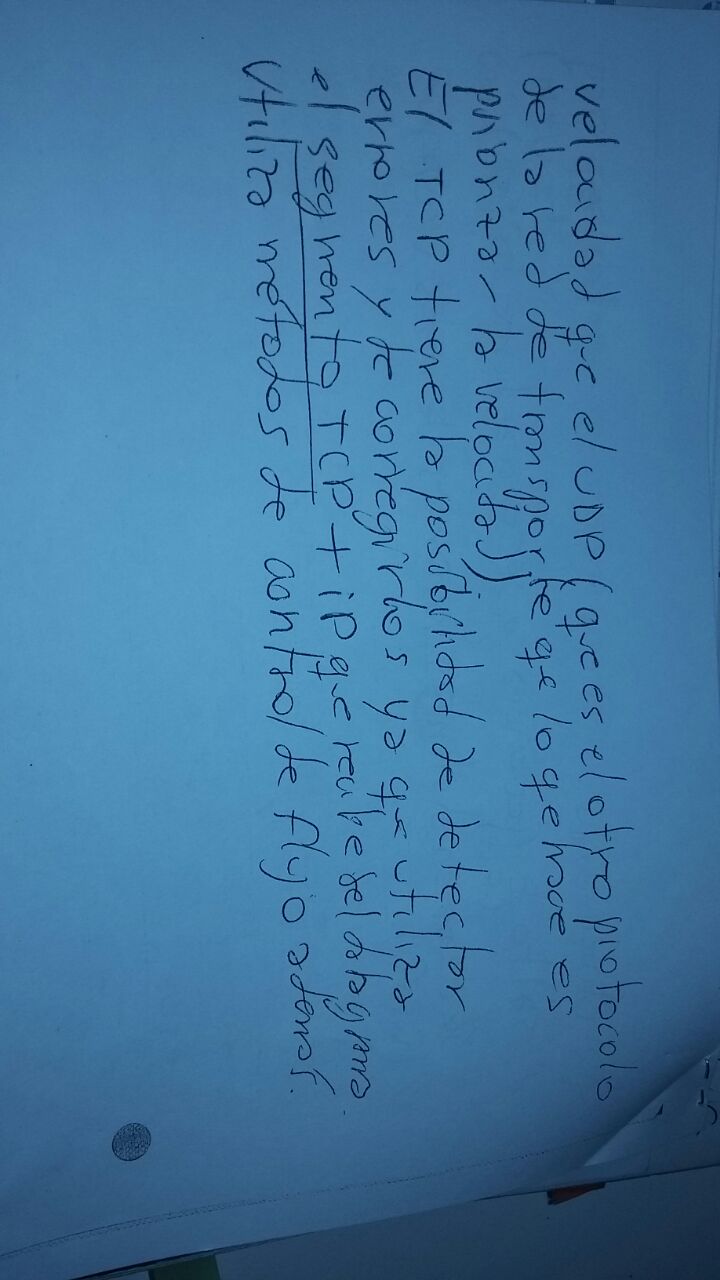 velocidad que el UDP (que es el otro protocolo
de la red de transporte que lo que hace es
priorizar la velocidad)
El TCP tiene la posibilidad de detectar
errores y de corregirlos ya que utiliza
el segmento TCP + iP que recibe del datagrama.
Utiliza metodos de control de flujo ademas.